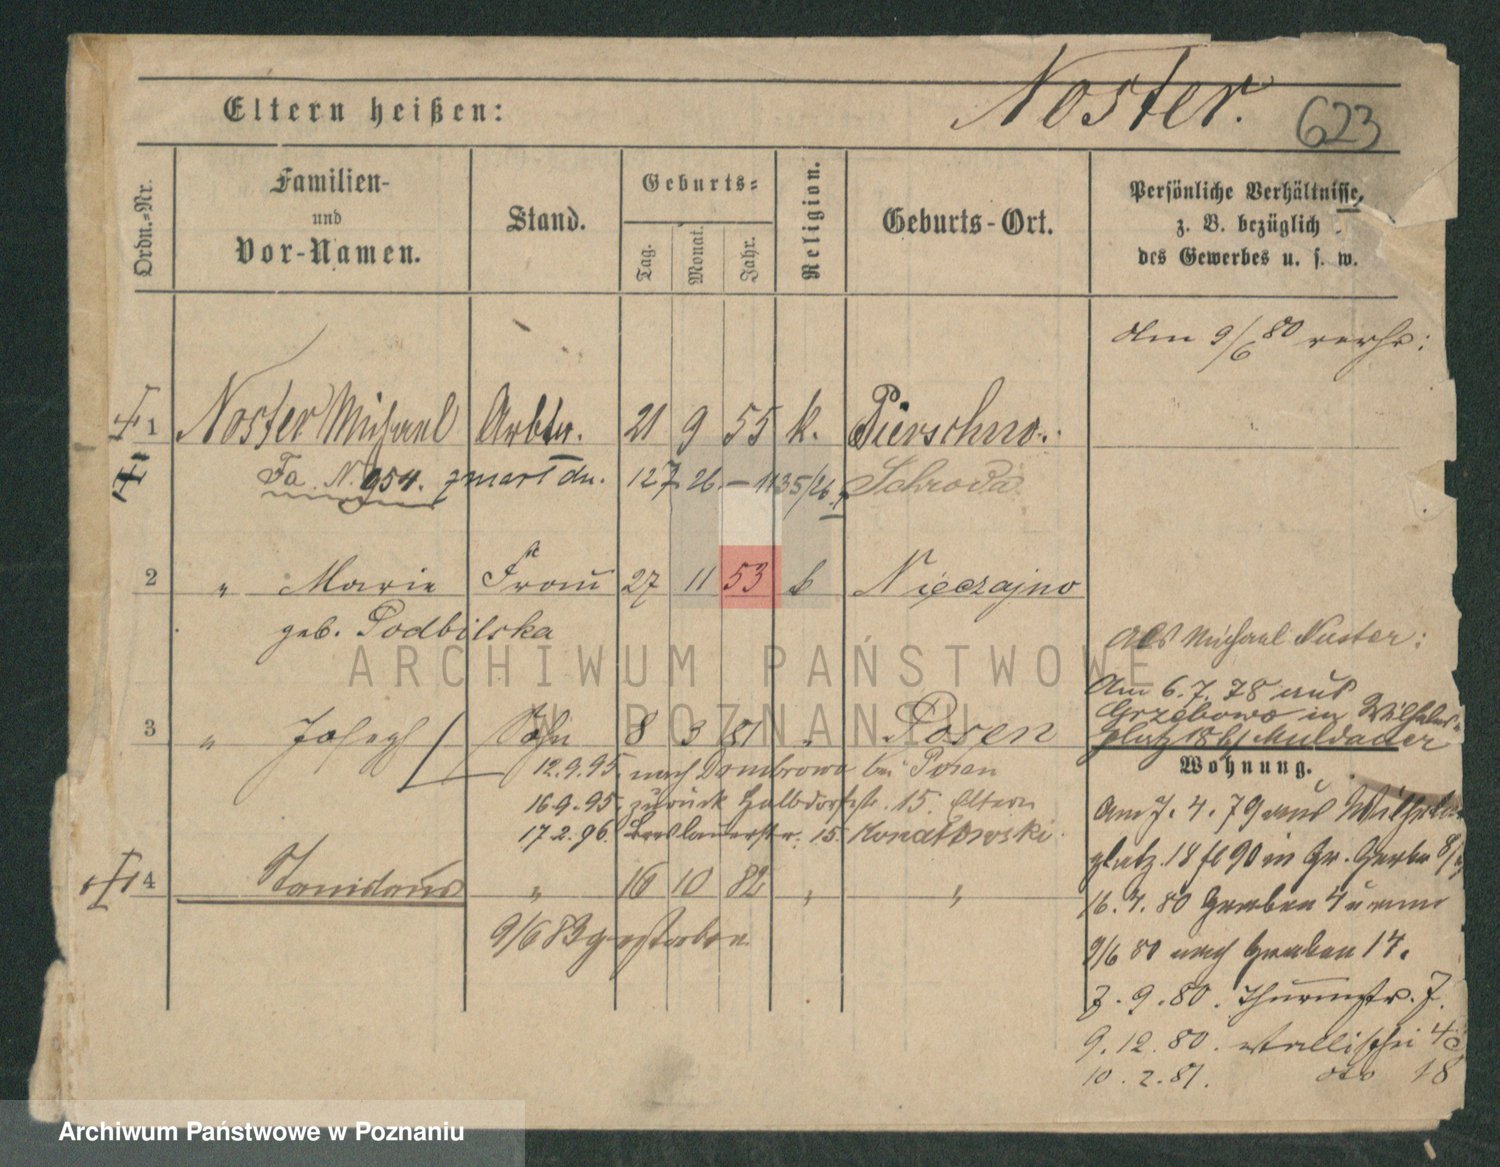 Noster.
623
Eltern heißen:
Ordn.-Nr.
Familien-
und
Vor-Namen.
Stand.
Geburts-
Tag.
Monat.
Jahr.
Religion.
Geburts-Ort.
Persönliche Verhältnisse,
z. B. bezüglich
des Gewerbes u. s. w.
am 9/6 80 verh:
1 Noster Michael Arbtr. 21 9 55 k. Pierschno.
Fa. N. 954. 127 26 Schroda
2 " Marie Frau 27 11 53 k Nieczajno
geb. Podbilska
Als Michael Nuster:
Am 6.7.78 aus
Grzebowo in Wilhelms-
platz 18 b/ Muldauer
3 " Joseph Sohn 8 3 81 " Posen
12.9.95. nach Dombrowo bei Posen
16.9.95. zurück Halbdorfstr. 15. Eltern
17.2.96. Breslauerstr. 15.
Wohnung.
Am 7.4.79 aus Wilhelms-
platz 18 in Gr. Gerber 8/
4 Stanislaus " 16 10 82 " "
9/6 83 gestorben
16.4.80 Graben
9/6 80 nach Graben 14.
7.9.80. Thurmstr. 7.
9.12.80. Wallischei
10.2.81. dto 18
ARCHIWUM PAŃSTWOWE
W POZNANIU
Archiwum Państwowe w Poznaniu